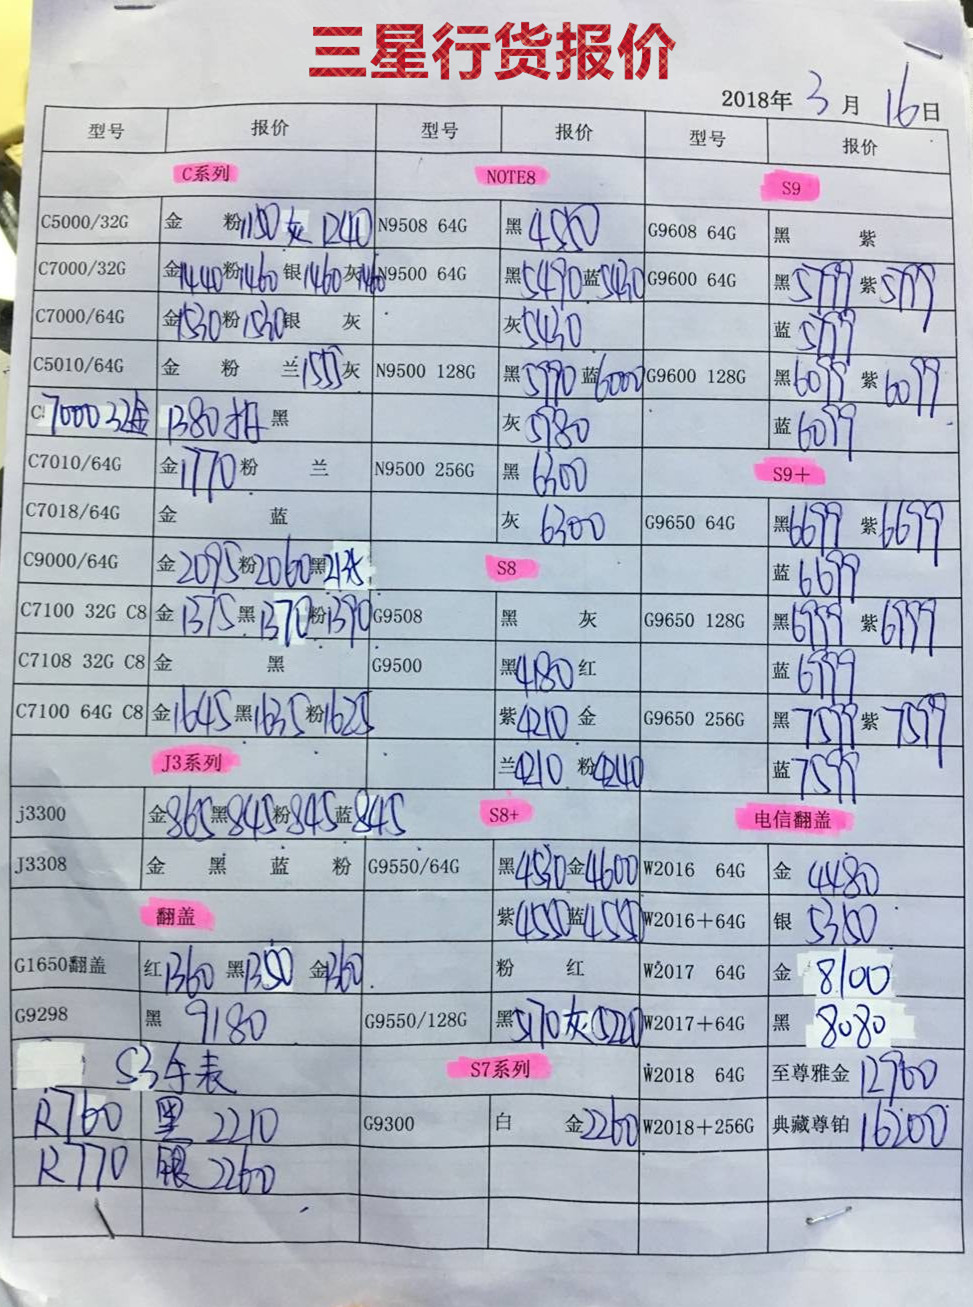 三星行货报价
2018年 3 月 16日
型号 报价 型号 报价 型号 报价
C系列 NOTE8 S9
C5000/32G 金 粉1150灰 1240 N9508 64G 黑 4550 G9608 64G 黑 紫
C7000/32G 金1440粉1460 银1460灰1460 N9500 64G 黑5490蓝5430 G9600 64G 黑5799 紫5799
C7000/64G 金1530粉1530银 灰 灰5430 蓝 5799
C5010/64G 金 粉 兰1555灰 N9500 128G 黑5990蓝6000 G9600 128G 黑6099 紫6099
C7000 32金 1380 黑 灰 5980 蓝 6099
C7010/64G 金1770粉 兰 N9500 256G 黑 6300 S9+
C7018/64G 金 蓝 灰 6300 G9650 64G 黑6699 紫6699
C9000/64G 金2095粉2060黑2135 S8 蓝 6699
C7100 32G C8 金 1375黑1370粉1390 G9508 黑 灰 G9650 128G 黑6999 紫6999
C7108 32G C8 金 黑 G9500 黑4180红 蓝 6999
C7100 64G C8 金1645黑1635粉1625 紫4210 金 G9650 256G 黑 7599紫 7599
J3系列 兰4210 粉4240 蓝7599
j3300 金865黑845粉845蓝845 S8+ 电信翻盖
J3308 金 黑 蓝 粉 G9550/64G 黑4530金4600 W2016 64G 金 4480
翻盖 紫4550蓝4550 W2016+64G 银 5350
G1650翻盖 红1360 黑1350 金1360 粉 红 W2017 64G 金 8100
G9298 黑 9180 G9550/128G 黑5170灰5220 W2017+64G 黑 8080
S3手表 S7系列 W2018 64G 至尊雅金 12900
R760 黑 2210 G9300 白 金2260 W2018+256G 典藏尊铂 16200
R770 银 2260